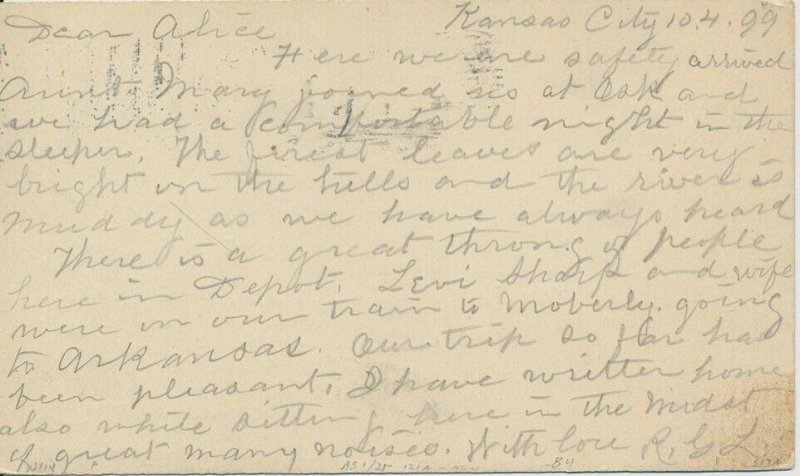 Kansas City 10.4.99
Dear Alice
Here we are safety arrived
Aunt Mary joined us at Osk and
we had a comfortable night in the
sleeper. The forest leaves are very
bright on the hills and the river is
muddy as we have always heard
There is a great throng of people
here in Depot. Levi Sharp and wife
were on our train to Moberly. going
to Arkansas. Our trip so far has
been pleasant. I have written home
also while sitting here in the midst
of great many noises. With love R. G. L.
B4